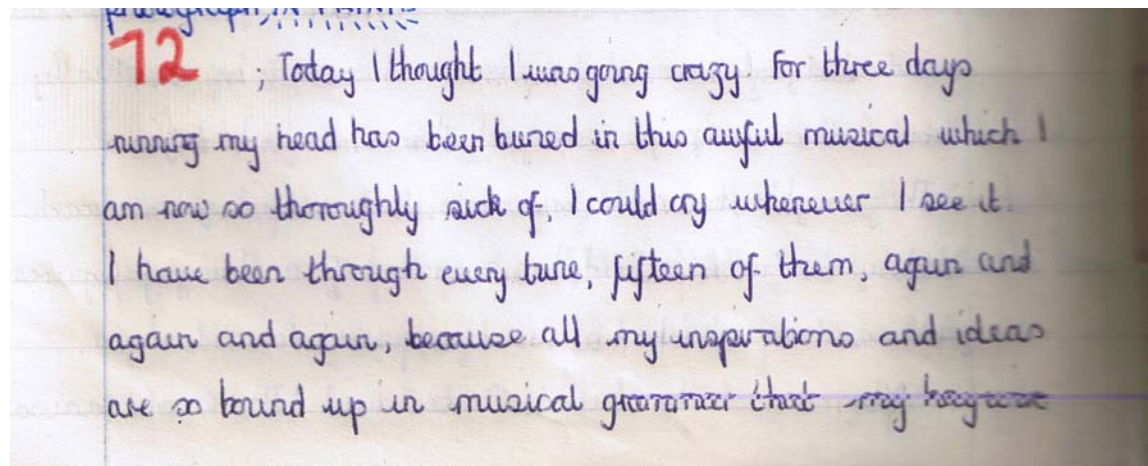 paragraph IN
72 ; Today I thought I was going crazy. For three days
running my head has been buried in this awful musical which I
am now so thoroughly sick of, I could cry whenever I see it.
I have been through every tune, fifteen of them, again and
again and again, because all my inspirations and ideas
are so bound up in musical grammar that my